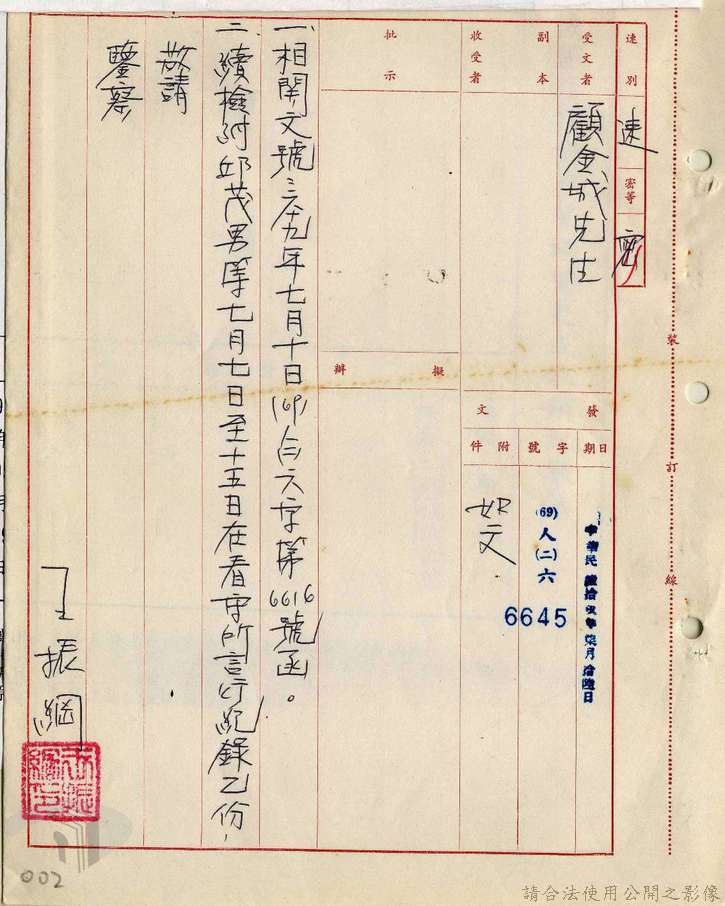 速別
速
密等
密
受文者
顧金城先生
副本
收受者
批示
擬辦
發文
日期
中華民國陸拾玖年柒月拾陸日
字號
(69)人(二)六
6645
附件
如文
一、相關文號:六十九年七月十日(69)人(二)六字第6616號函。
二、續檢附邱茂男等七月七日至十五日在看守所言行紀錄乙份,
敬請
鑒察
王振綱
裝訂線
002
請合法使用公開之影像